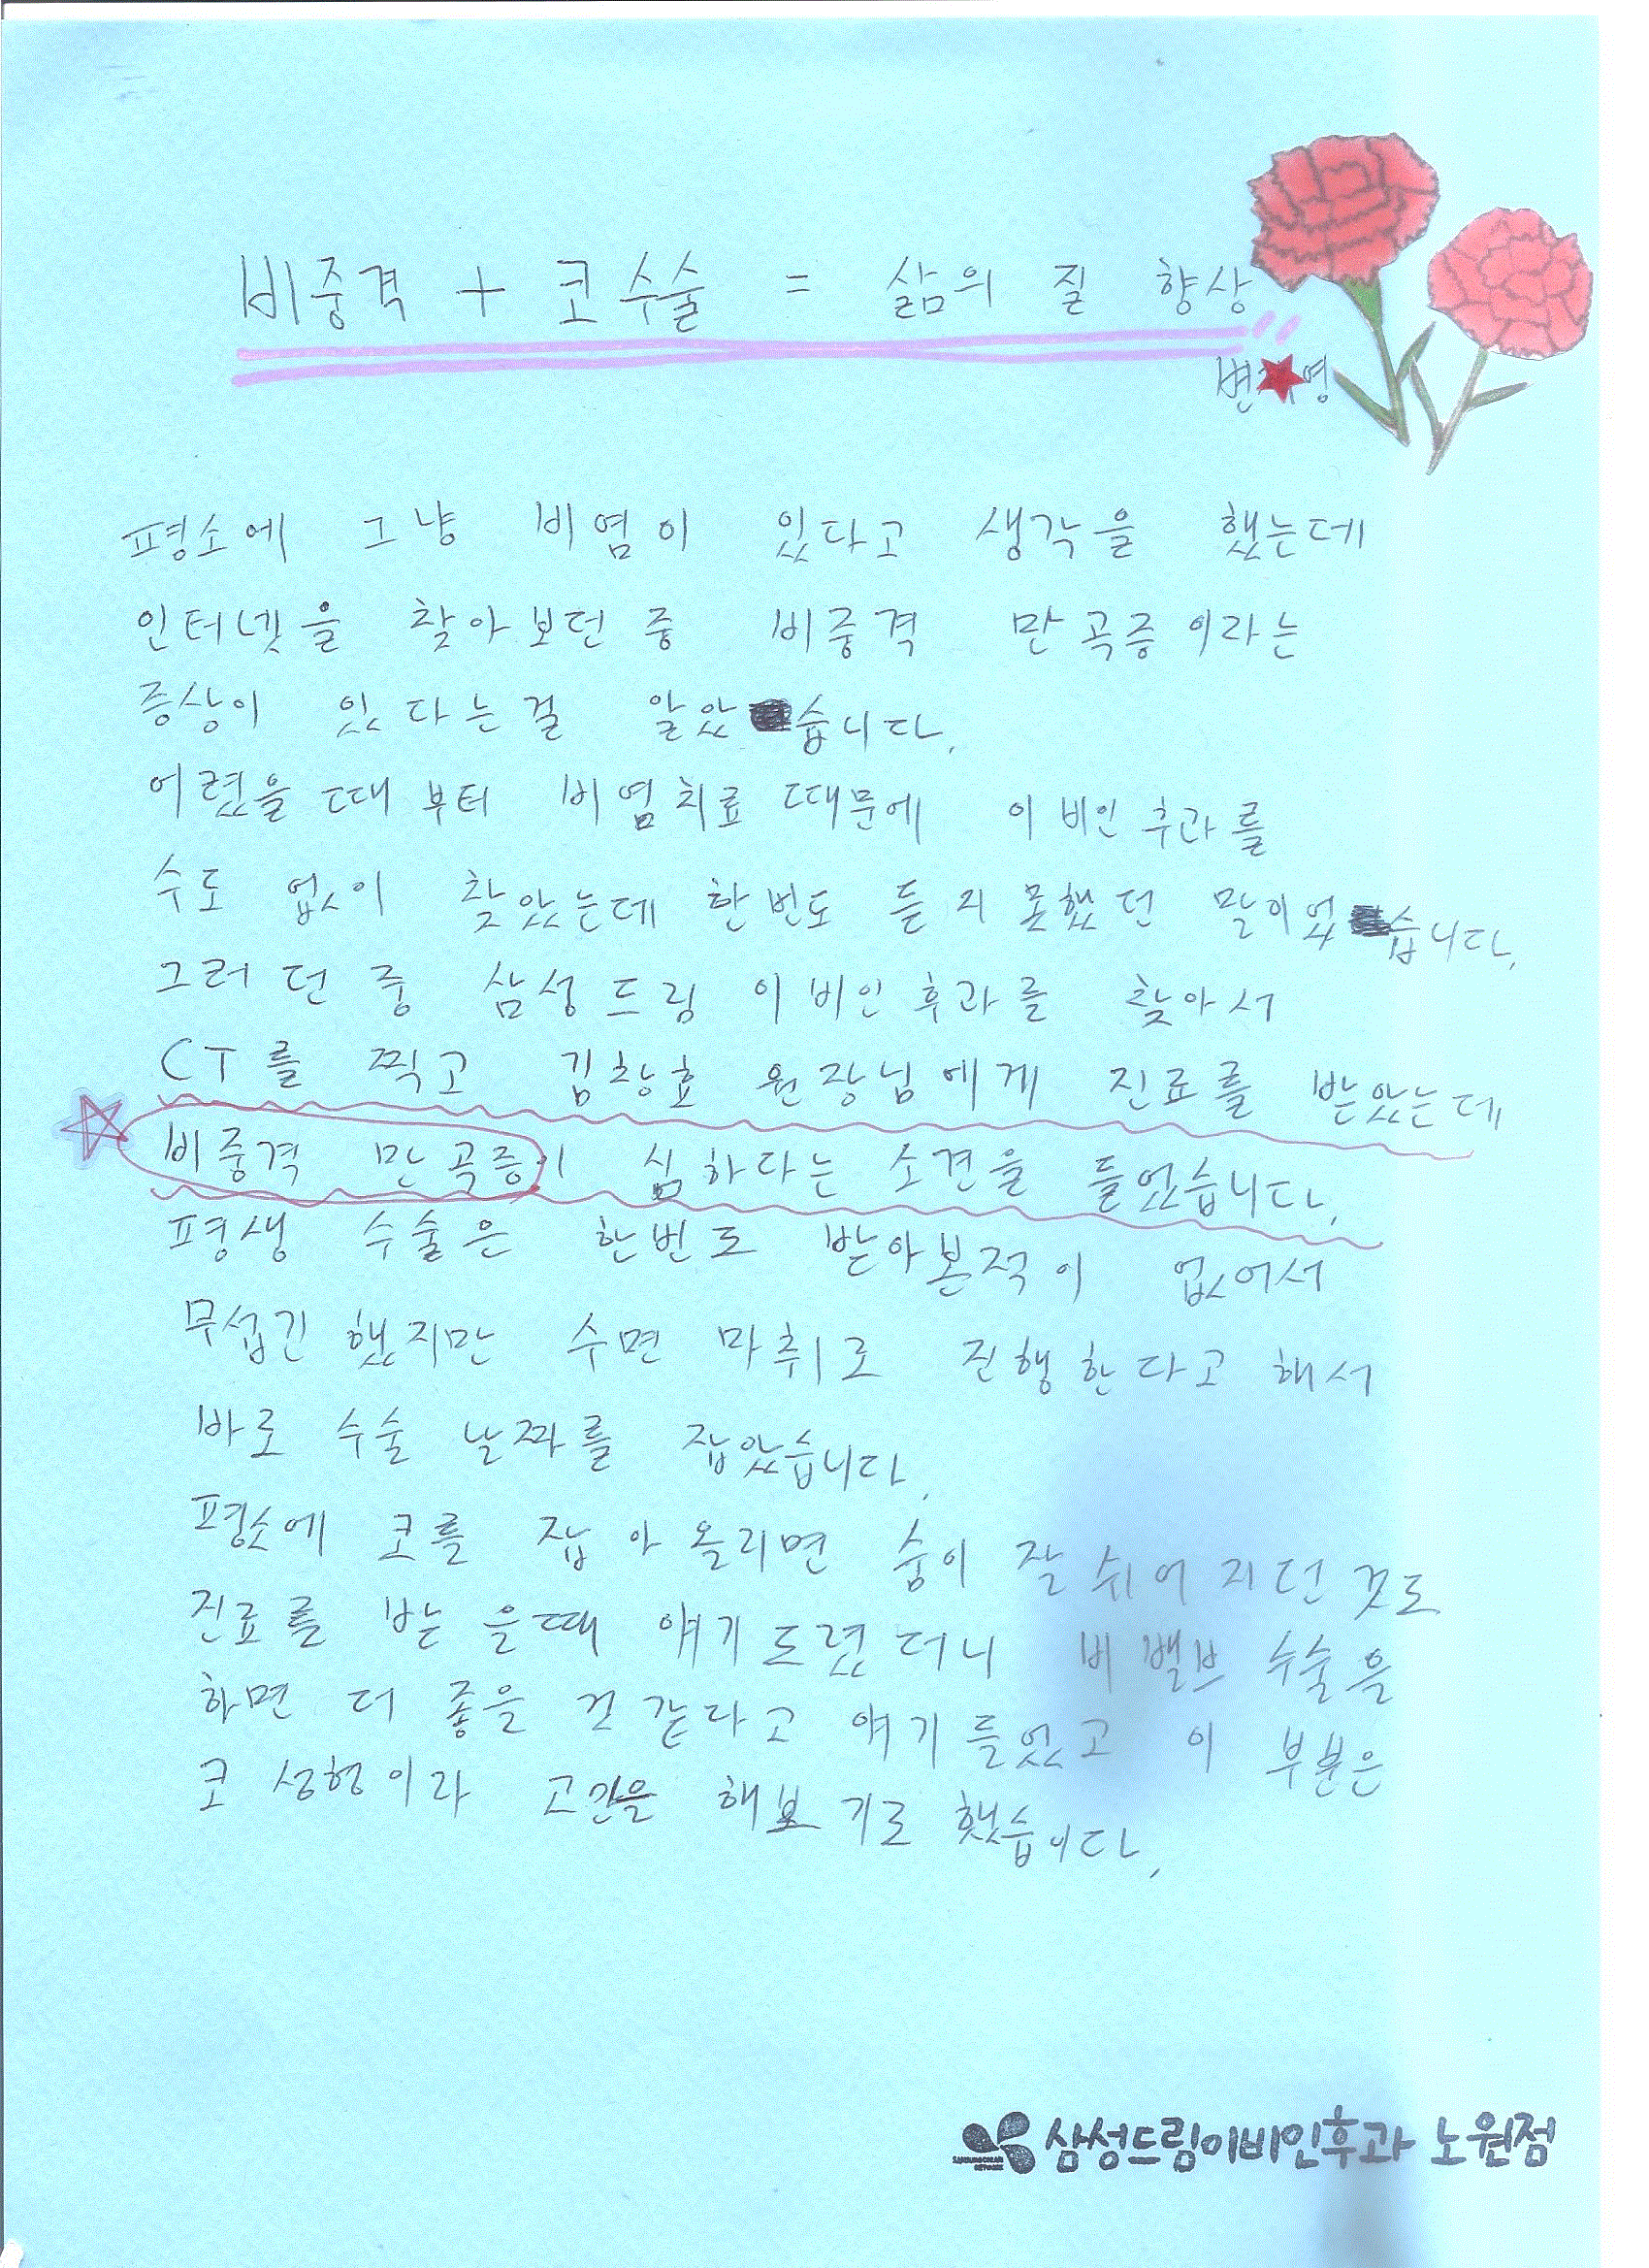 비중격 + 코수술 = 삶의 질 향상
변 영
평소에 그냥 비염이 있다고 생각을 했는데
인터넷을 찾아보던 중 비중격 만곡증이라는
증상이 있다는걸 알았습니다.
어렸을때부터 비염치료 때문에 이비인후과를
수도 없이 찾았는데 한번도 듣지 못했던 말이었습니다.
그러던 중 삼성드림 이비인후과를 찾아서
CT를 찍고 김창효 원장님에게 진료를 받았는데
비중격 만곡증이 심하다는 소견을 들었습니다.
평생 수술은 한번도 받아본적이 없어서
무섭긴 했지만 수면 마취로 진행한다고 해서
바로 수술 날짜를 잡았습니다.
평소에 코를 잡아 올리면 숨이 잘 쉬어지던 것도
진료를 받을때 얘기드렸더니 비밸브 수술을
하면 더 좋을 것 같다고 얘기들었고 이 부분은
코 성형이라 고민을 해보기로 했습니다.
삼성드림이비인후과 노원점